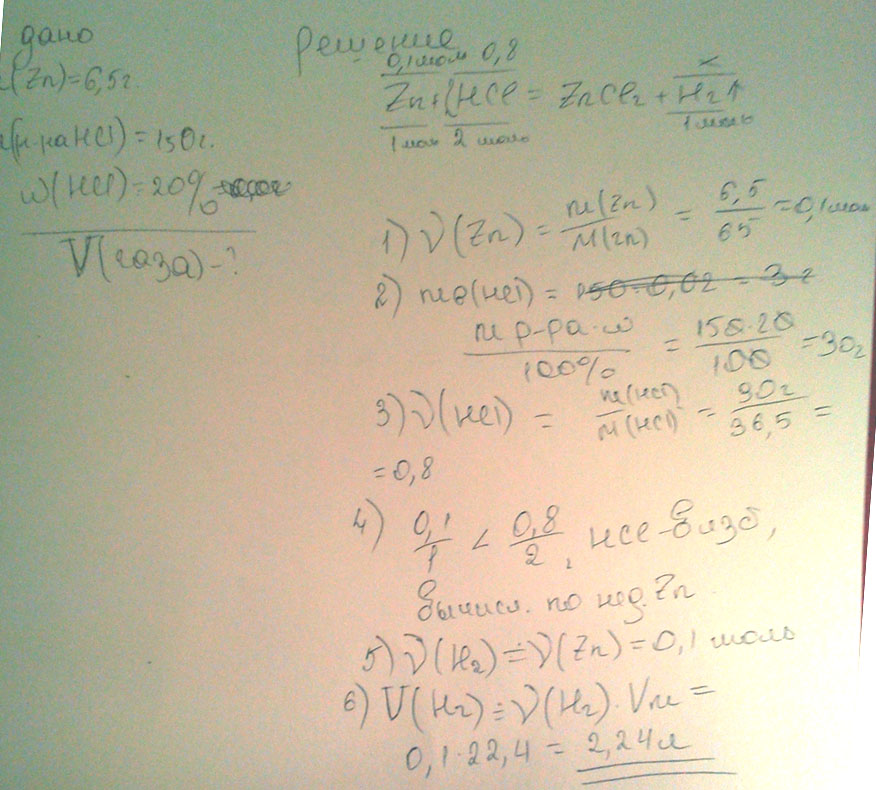 дано
(Zn)=6,5г.
(р-ра HCl)=150г.
w(HCl)=20%
V(газа)-?
Решение
0,1моль 0,8 x
Zn+2HCl = ZnCl2 + H2↑
1моль 2 моль 1моль
1) ν(Zn) = m(Zn)/M(Zn) = 6,5/65 = 0,1моль
2) mв(HCl) = 150·0,02 = 3г
m р-ра·w/100% = 150·20/100 = 30г
3) ν(HCl) = m(HCl)/M(HCl) = 30г/36,5 =
=0,8
4) 0,1/1 < 0,8/2, HCl-в изб,
вычисл. по нед. Zn
5) ν(H2) = ν(Zn) = 0,1 моль
6) V(H2) = ν(H2)·Vm =
0,1·22,4 = 2,24л